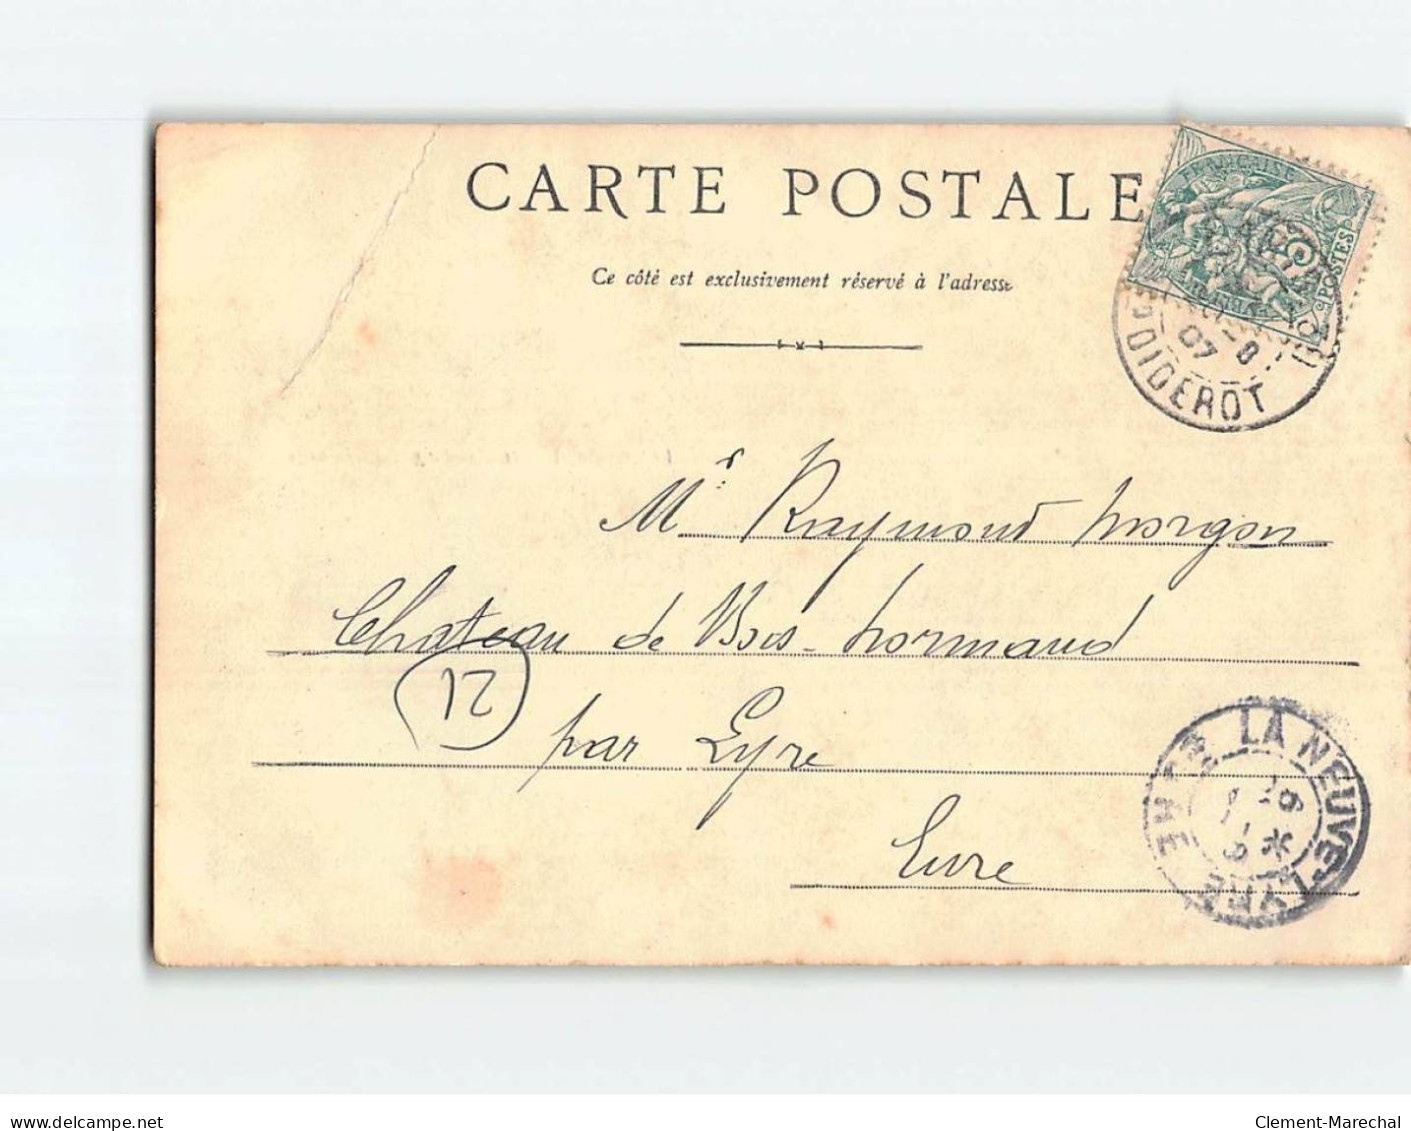 CARTE POSTALE
Ce côté est exclusivement réservé à l'adresse
FRANÇAISE
POSTES
5
07
Bd DIDEROT
Mr Raymond Morgon
Chateau de Bois-Normand
par Lyre
Eure
21
LA NEUVE-LYRE
EURE
www.delcampe.net
Clement-Marechal